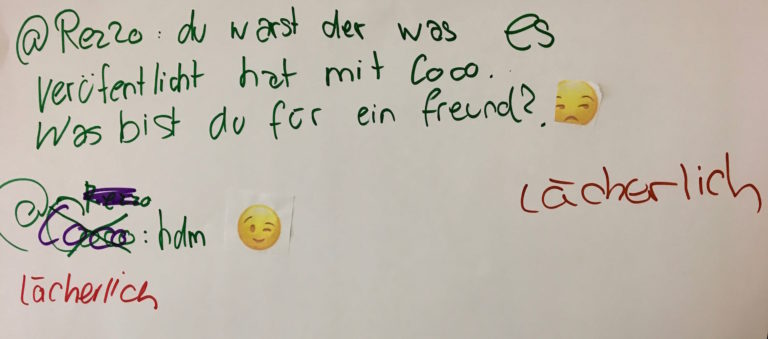 @Rezzo: du warst der was es
veröfentlicht hat mit Cooo.
Was bist du für ein freund?.
lächerlich
@
: hdm
lächerlich